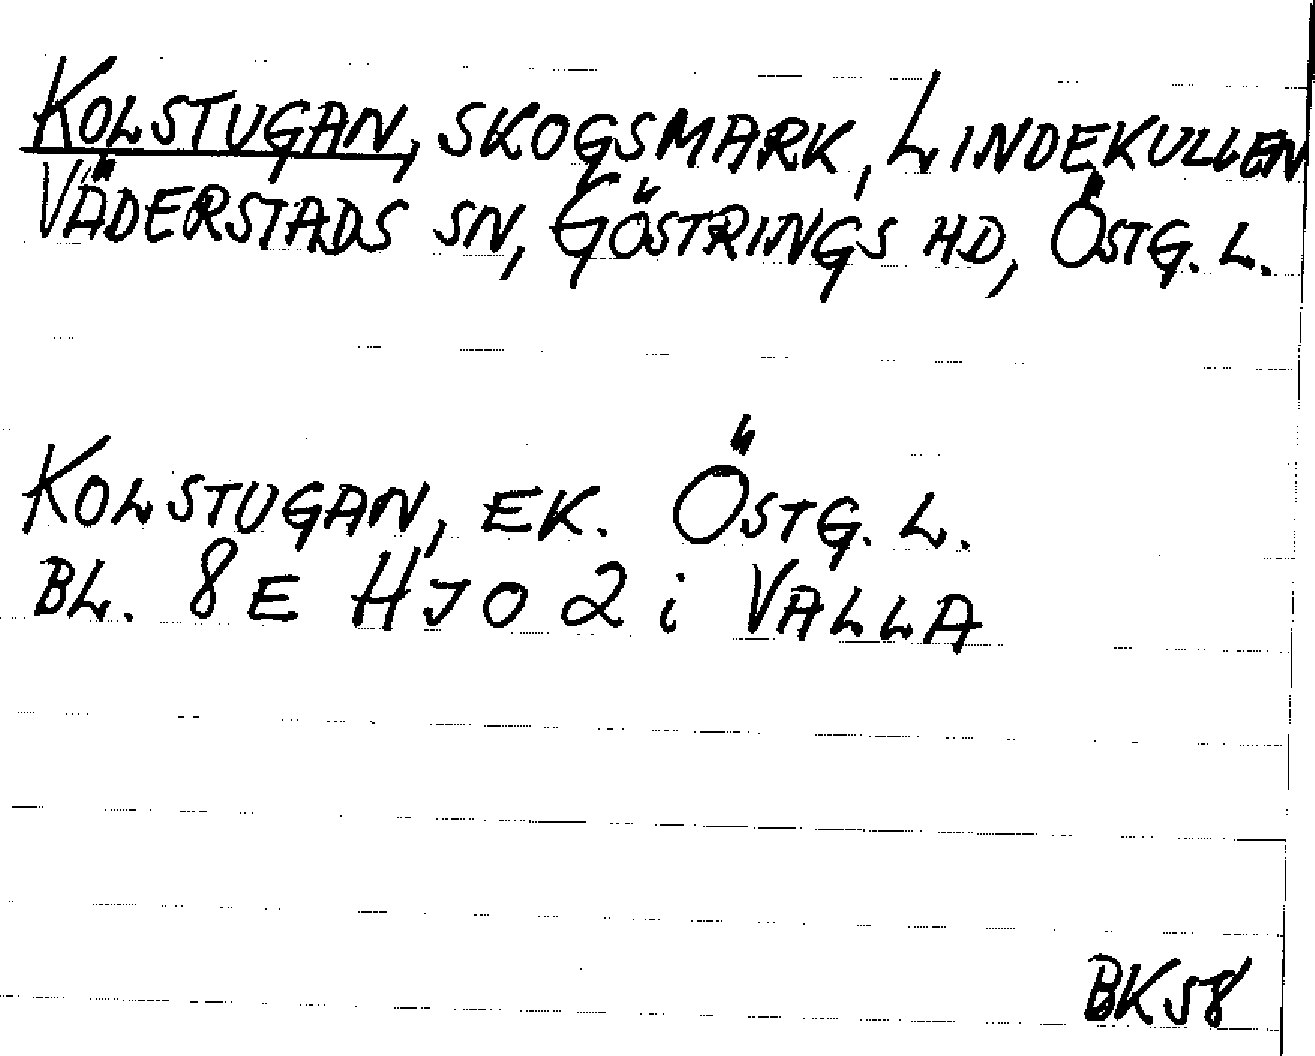 KOLSTUGAN, SKOGSMARK, LINDEKULLEN
VÄDERSTADS SN, GÖSTRINGS HD, ÖSTG. L.
KOLSTUGAN, EK. ÖSTG. L.
BL. 8E HJO 2i VALLA
BK58